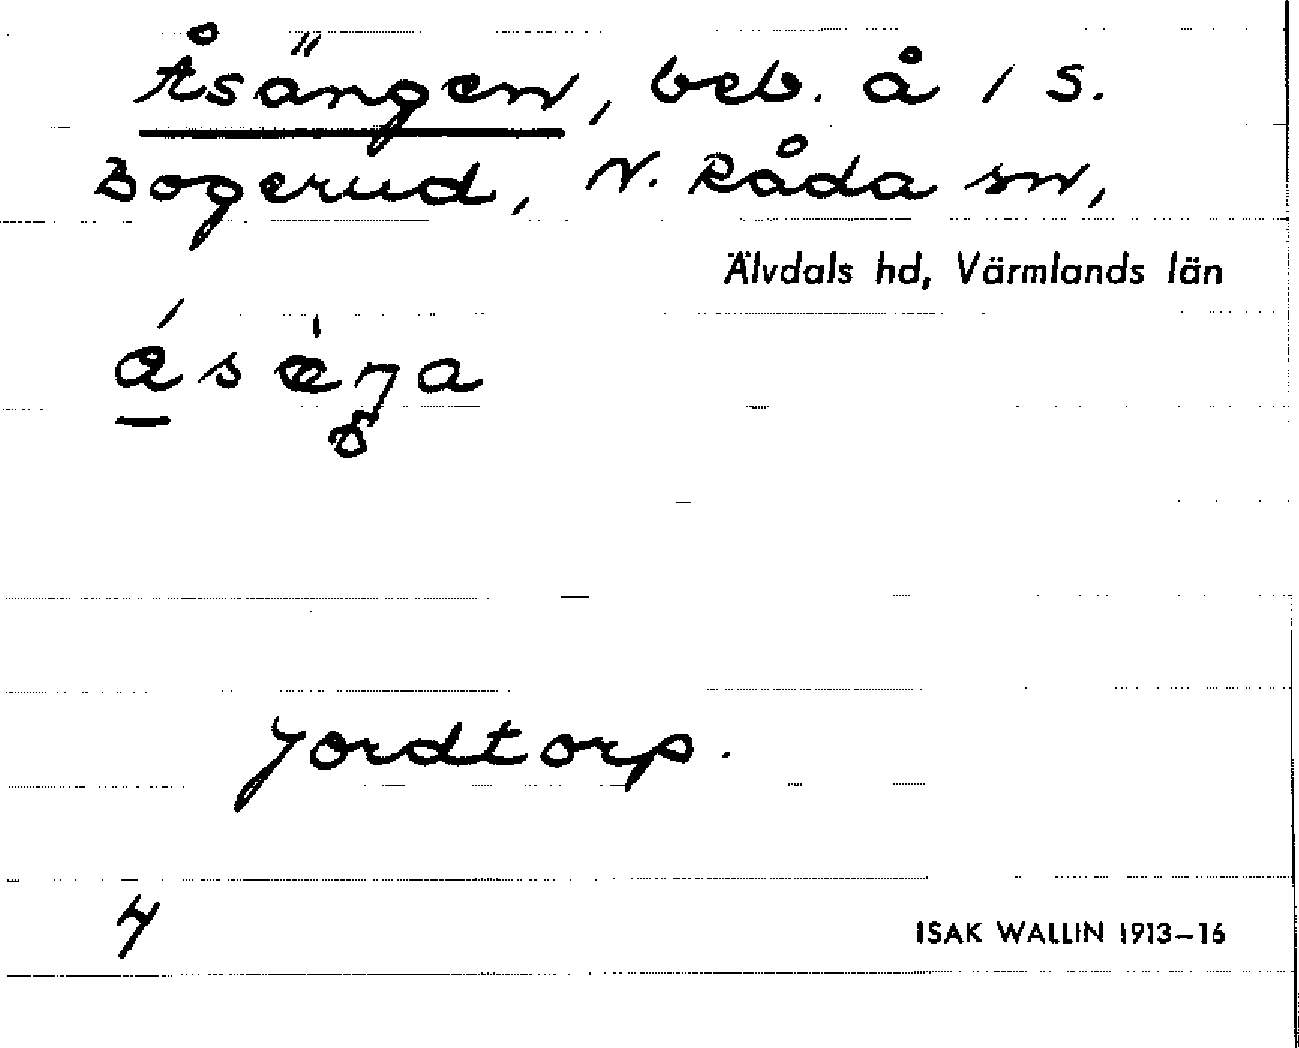 Åsängen, beb. å 1 S.
Bogerud, N. Råda sn,
Älvdals hd, Värmlands län
Jordtorp.
4
ISAK WALLIN 1913–16